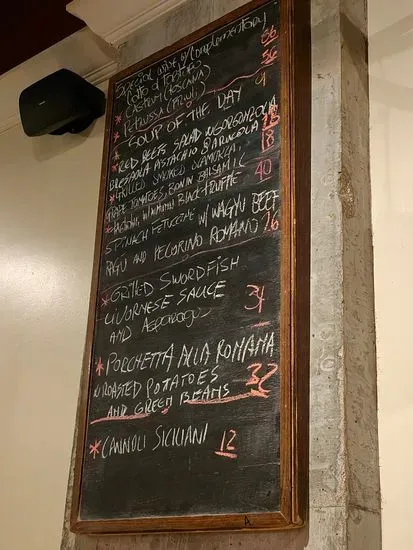 Special wine w/ complementary
56
56
* Petrussa (Friuli)
* Soup of the Day 9
* Red Beets salad w/ Gorgonzola
Bresaola Pistachio & Arugola 18
* Grilled Smoked Scamorza,
Grape Tomatoes, Balsamic 18
Black Truffle 40
Spinach Fetuccine w/ Wagyu Beef
Ragu and Pecorino Romano 26
* Grilled Swordfish
Livornese Sauce
and Asparagus 34
* Porchetta alla Romana
w roasted Potatoes
and Green Beans 32
* Cannoli Siciliani 12